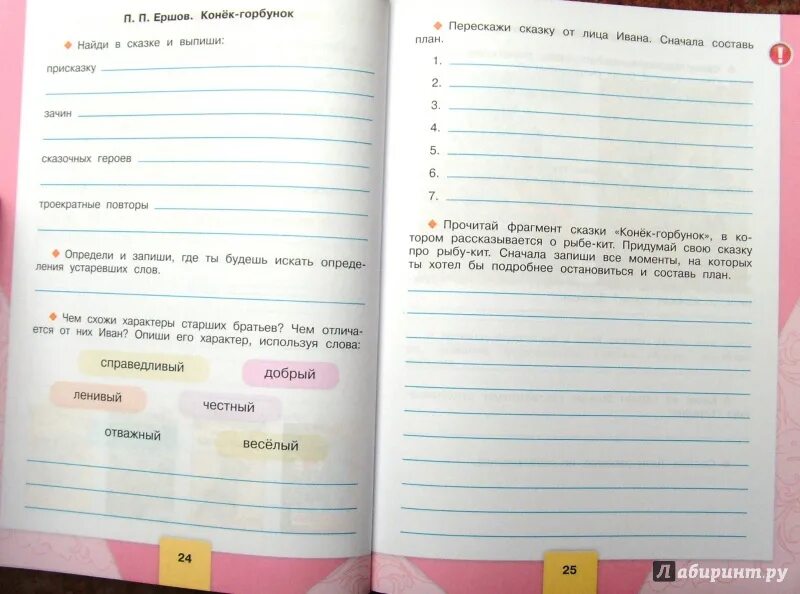 П. П. Ершов. Конёк-горбунок
Найди в сказке и выпиши:
присказку
зачин
сказочных героев
троекратные повторы
Определи и запиши, где ты будешь искать опреде-
ления устаревших слов.
Чем схожи характеры старших братьев? Чем отлича-
ется от них Иван? Опиши его характер, используя слова:
справедливый
добрый
ленивый
честный
отважный
весёлый
24
Перескажи сказку от лица Ивана. Сначала составь
план.
1.
2.
3.
4.
5.
6.
7.
!
Прочитай фрагмент сказки «Конёк-горбунок», в ко-
тором рассказывается о рыбе-кит. Придумай свою сказку
про рыбу-кит. Сначала запиши все моменты, на которых
ты хотел бы подробнее остановиться и составь план.
25
Лабиринт.ру